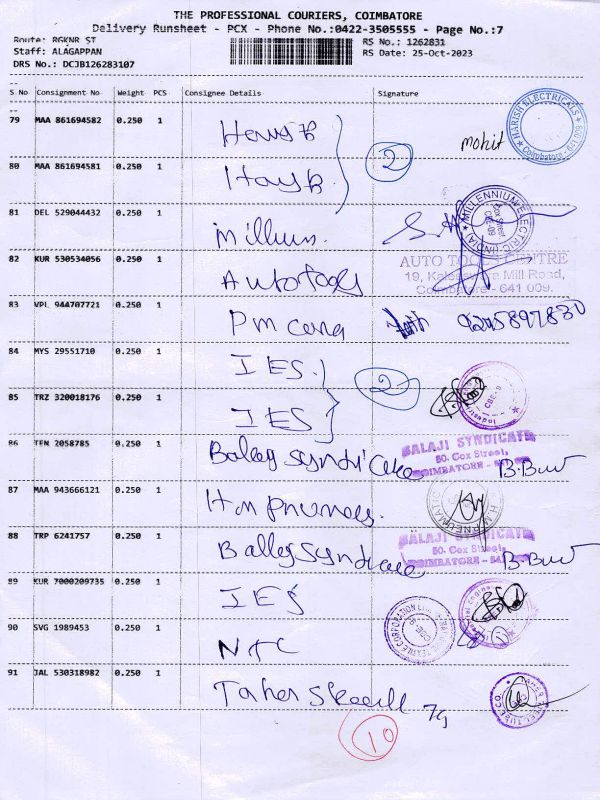 THE PROFESSIONAL COURIERS, COIMBATORE
Delivery Runsheet - PCX - Phone No.:0422-3505555 - Page No.:7
Route: RGKNR ST
RS No.: 1262831
Staff: ALAGAPPAN
RS Date: 25-Oct-2023
DRS No.: DCJB126283107
S No Consignment No Weight PCS Consignee Details Signature
79 MAA 861694582 0.250 1 mohit HARISH ELECTRICALS Coimbatore
80 MAA 861694581 0.250 1 2
81 DEL 529044432 0.250 1 millium. MILLENNIUM ELECTRIC (INDIA) Cox Street CBE-09
82 KUR 530534056 0.250 1 Autotools AUTO TOOLS CENTRE
19, Mill Road,
Coimbatore - 641 009.
83 VPL 944707721 0.250 1 Pm 9245897830
84 MYS 29551710 0.250 1 IES
85 TRZ 320018176 0.250 1 IES 2 CBE-9
86 TEN 2058785 0.250 1 BALAJI SYNDICATE
50. Cox Street,
COIMBATORE B.Buv
87 MAA 943666121 0.250 1 H.M. PNEUMATIC
88 TRP 6241757 0.250 1 BALAJI SYNDICATE
50. Cox Street,
COIMBATORE B.Buv
89 KUR 7000209735 0.250 1 IES
90 SVG 1989453 0.250 1 NTC TEXTILE CORPORATION CBE-9
91 JAL 530318982 0.250 1 Taher
10